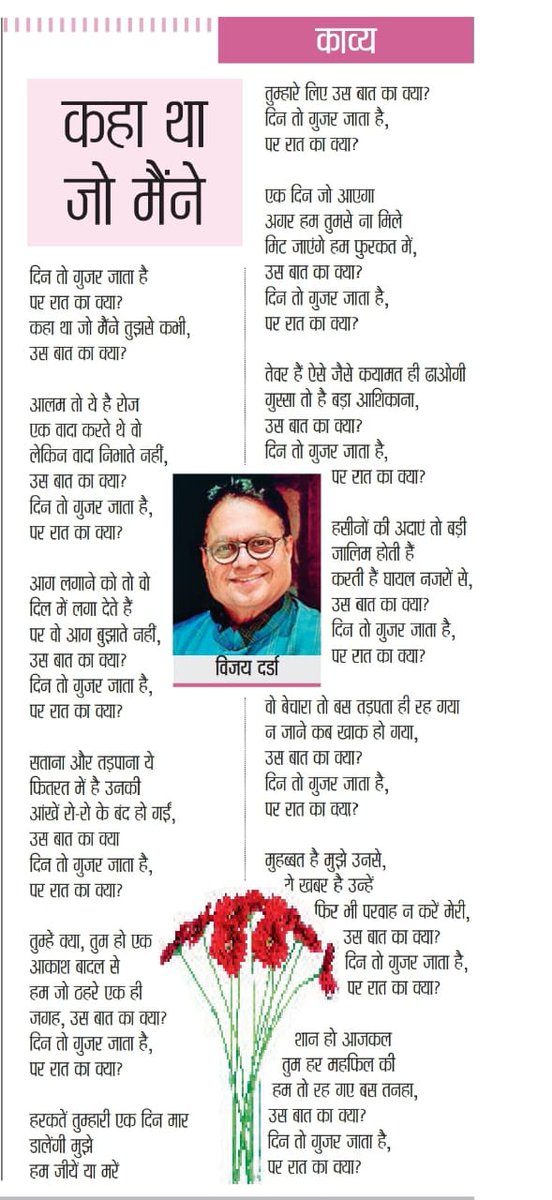 काव्य
कहा था
जो मैंने
दिन तो गुजर जाता है
पर रात का क्या?
कहा था जो मैंने तुझसे कभी,
उस बात का क्या?
आलम तो ये है रोज
एक वादा करते थे वो
लेकिन वादा निभाते नहीं,
उस बात का क्या?
दिन तो गुजर जाता है,
पर रात का क्या?
आग लगाने को तो वो
दिल में लगा देते हैं
पर वो आग बुझाते नहीं,
उस बात का क्या?
दिन तो गुजर जाता है,
पर रात का क्या?
सताना और तड़पाना ये
फितरत में है उनकी
आंखें रो-रो के बंद हो गईं,
उस बात का क्या
दिन तो गुजर जाता है,
पर रात का क्या?
तुम्हें क्या, तुम हो एक
आकाश बादल से
हम जो ठहरे एक ही
जगह, उस बात का क्या?
दिन तो गुजर जाता है,
पर रात का क्या?
हरकतें तुम्हारी एक दिन मार
डालेंगी मुझे
हम जीयें या मरें
तुम्हारे लिए उस बात का क्या?
दिन तो गुजर जाता है,
पर रात का क्या?
एक दिन जो आएगा
अगर हम तुमसे ना मिले
मिट जाएंगे हम फुरकत में,
उस बात का क्या?
दिन तो गुजर जाता है,
पर रात का क्या?
तेवर हैं ऐसे जैसे कयामत ही ढाओगी
गुस्सा तो है बड़ा आशिकाना,
उस बात का क्या?
दिन तो गुजर जाता है,
पर रात का क्या?
हसीनों की अदाएं तो बड़ी
जालिम होती हैं
करती हैं घायल नजरों से,
उस बात का क्या?
दिन तो गुजर जाता है,
पर रात का क्या?
विजय दर्डा
वो बेचारा तो बस तड़पता ही रह गया
न जाने कब खाक हो गया,
उस बात का क्या?
दिन तो गुजर जाता है,
पर रात का क्या?
मुहब्बत है मुझे उनसे,
ये खबर है उन्हें
फिर भी परवाह न करें मेरी,
उस बात का क्या?
दिन तो गुजर जाता है,
पर रात का क्या?
शान हो आजकल
तुम हर महफिल की
हम तो रह गए बस तनहा,
उस बात का क्या?
दिन तो गुजर जाता है,
पर रात का क्या?